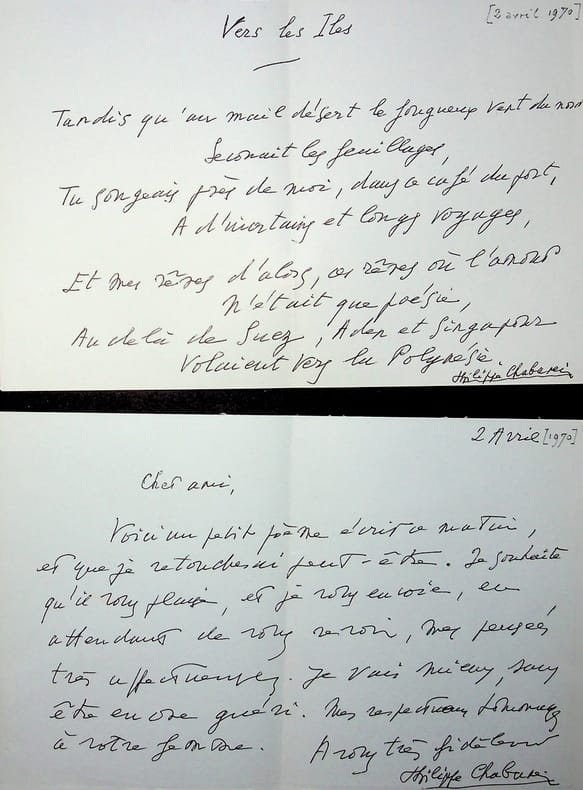 [2 avril 1970]
Vers les Iles
Tandis qu'au mail désert le fougueux vent du nord
Secouait les feuillages,
Tu songeais près de moi, dans ce café du port,
A d'incertains et longs voyages,
Et mes rêves d'alors, ces rêves où l'amour
N'était que poésie,
Au delà de Suez, Aden et Singapour
Volaient vers la Polynésie.
Philippe Chabaneix
2 Avril [1970]
Cher ami,
Voici un petit poème écrit ce matin,
et que je retoucherai peut-être. Je souhaite
qu'il vous plaise, et je vous envoie, en
attendant de vous revoir, mes pensées
très affectueuses. Je vais mieux, sans
être encore guéri. Mes respectueux hommages
à votre femme. A vous très fidèlement
Philippe Chabaneix